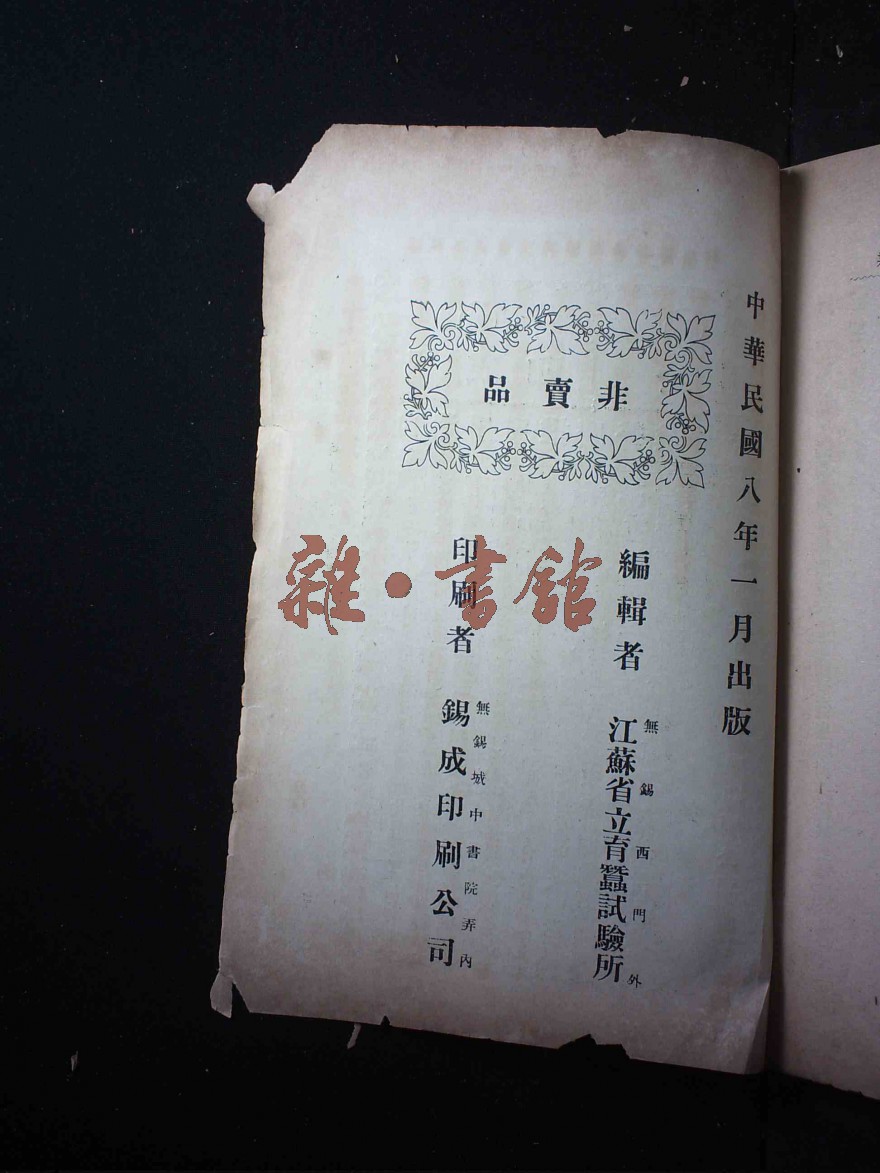 中華民國八年一月出版
非賣品
編輯者
無錫西門外
江蘇省立育蠶試驗所
印刷者
無錫城中書院弄內
錫成印刷公司
雜·書館